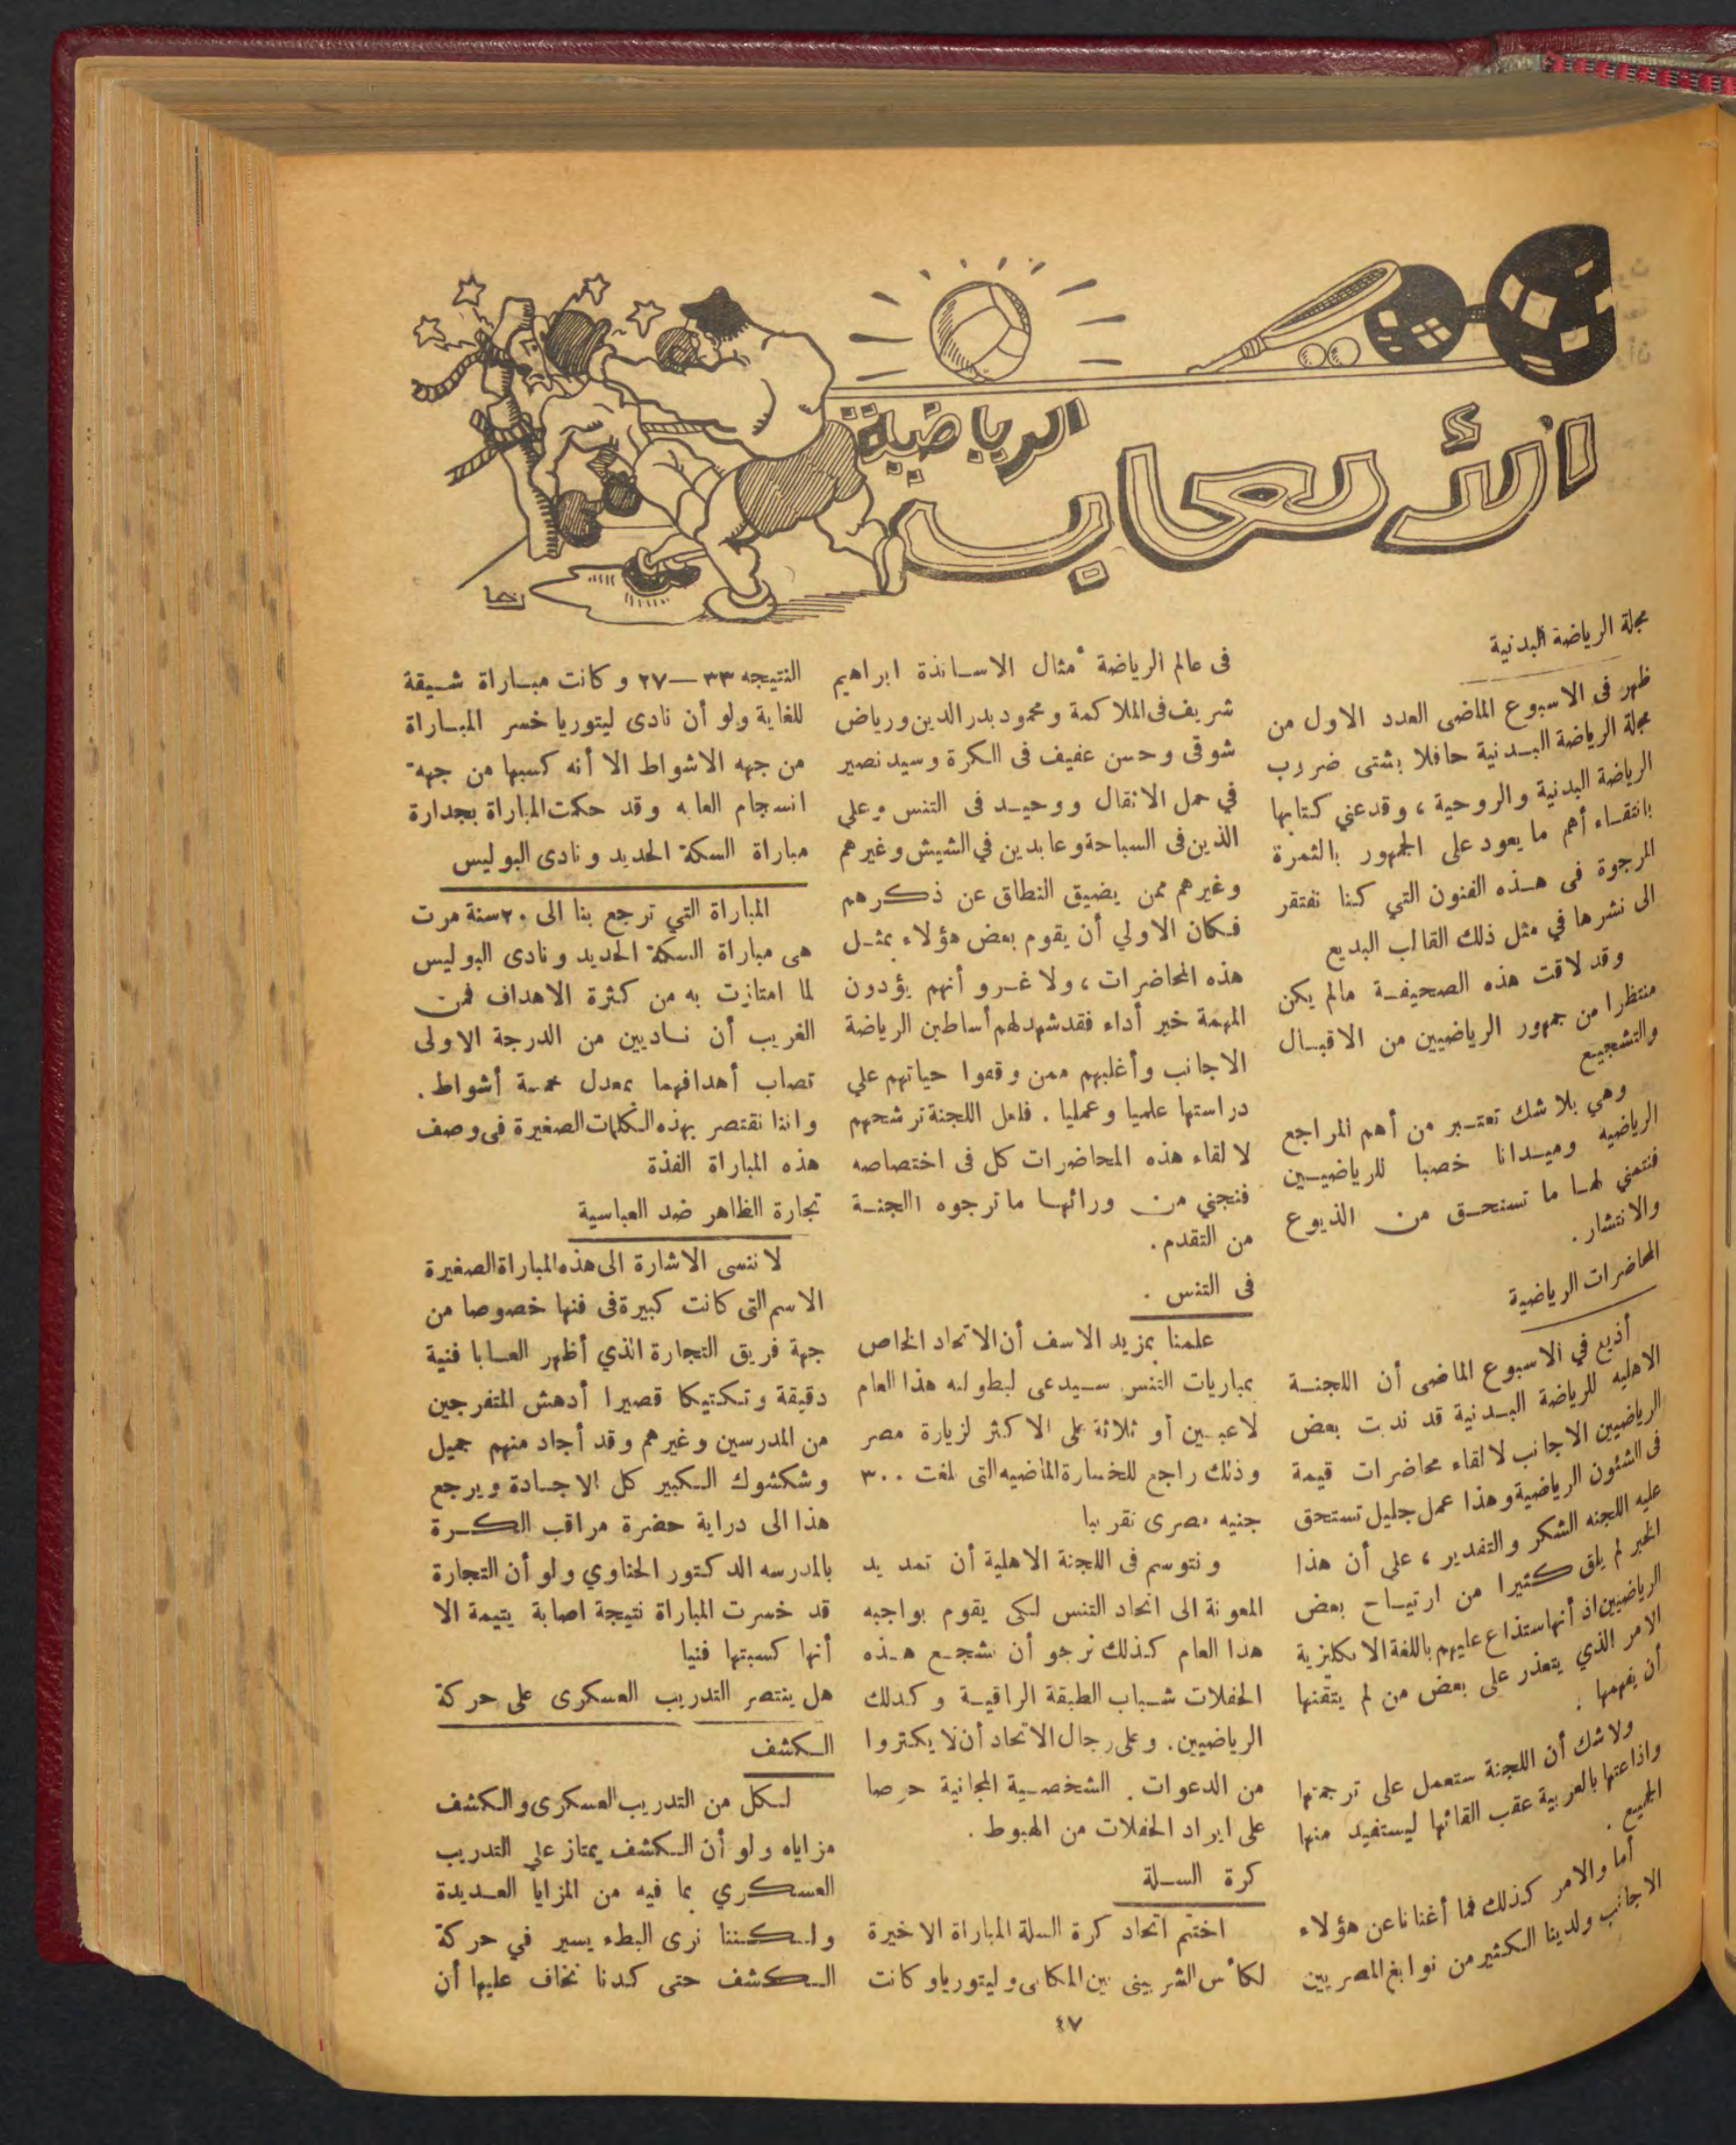 الألعاب
الرياضية
رخا
مجلة الرياضة البدنية
ظهر فى الاسبوع الماضى العدد الاول من
مجلة الرياضة البدنية حافلا بشتى ضروب
الرياضة البدنية والروحية ، وقد عني كتابها
بانتقاء أهم ما يعود على الجمهور بالثمرة
المرجوة فى هذه الفنون التي كنا نفتقر
الى نشرها في مثل ذلك القالب البديع
وقد لاقت هذه الصحيفة مالم يكن
منتظرا من جمهور الرياضيين من الاقبال
والتشجيع
وهي بلا شك تعتبر من أهم المراجع
الرياضيه وميدانا خصبا للرياضيين
فنتمني لها ما تستحق من الذيوع
والانتشار .
المحاضرات الرياضية
أذيع في الاسبوع الماضى أن اللجنة
الاهليه للرياضة البدنية قد ندبت بعض
الرياضيين الاجانب لالقاء محاضرات قيمة
فى الشئون الرياضية وهذا عمل جليل تستحق
عليه اللجنه الشكر والتقدير ، على أن هذا
الخبر لم يلق كثيرا من ارتياح بعض
الرياضيين اذ أنها ستذاع عليهم باللغة الانكليزية
الامر الذي يتعذر على بعض من لم يتقنها
أن يفهمها .
ولا شك أن اللجنة ستعمل على ترجمتها
واذاعتها بالعربية عقب القائها ليستفيد منها
الجميع .
أما والامر كذلك فما أغنانا عن هؤلاء
الاجانب ولدينا الكثير من نوابغ المصريين
فى عالم الرياضة أمثال الاساتذة ابراهيم
شريف فى الملاكمة ومحمود بدر الدين ورياض
شوقى وحسن عفيف فى الكرة وسيد نصير
في حمل الاثقال ووحيد فى التنس وعلي
الذين فى السباحة وعابدين في الشيش وغيرهم
وغيرهم ممن يضيق النطاق عن ذكرهم
فكان الاولي أن يقوم بعض هؤلاء بمثل
هذه المحاضرات ، ولا غرو أنهم يؤدون
المهمة خير أداء فقد شهد لهم أساطين الرياضة
الاجانب وأغلبهم ممن وقفوا حياتهم علي
دراستها علميا وعمليا . فلعل اللجنة ترشحهم
لالقاء هذه المحاضرات كل فى اختصاصه
فنجني من ورائها ما ترجوه اللجنة
من التقدم .
فى التنس .
علمنا بمزيد الاسف أن الاتحاد الخاص
بمباريات التنس سيدعى لبطولته هذا العام
لاعبين أو ثلاثة على الاكثر لزيارة مصر
وذلك راجع للخسارة الماضيه التى بلغت ٣٠٠
جنيه مصرى تقريبا
ونتوسم فى اللجنة الاهلية أن تمد يد
المعونة الى اتحاد التنس لكى يقوم بواجبه
هذا العام كذلك نرجو أن تشجع هذه
الحفلات شباب الطبقة الراقية وكذلك
الرياضيين . وعلى رجال الاتحاد أن لا يكثروا
من الدعوات . الشخصية المجانية حرصا
على ايراد الحفلات من الهبوط .
كرة السلة
اختتم اتحاد كرة السلة المباراة الاخيرة
لكأس الشربينى بين المكابى وليتوريا وكانت
النتيجه ٣٣—٢٧ وكانت مباراة شيقة
للغاية ولو أن نادى ليتوريا خسر المباراة
من جهه الاشواط الا أنه كسبها من جهه
انسجام العابه وقد حكمت المباراة بجدارة
مباراة السكة الحديد ونادى البوليس
المباراة التي ترجع بنا الى ٢٠ سنة مرت
هى مباراة السكة الحديد ونادى البوليس
لما امتازت به من كثرة الاهداف فمن
الغريب أن ناديين من الدرجة الاولى
تصاب أهدافهما بمعدل خمسة أشواط .
واننا نقتصر بهذه الكلمات الصغيرة فى وصف
هذه المباراة الفذة
تجارة الظاهر ضد العباسية
لا ننسى الاشارة الى هذه المباراة الصغيرة
الاسم التى كانت كبيرة فى فنها خصوصا من
جهة فريق التجارة الذي أظهر العابا فنية
دقيقة وتكتيكا قصيرا أدهش المتفرجين
من المدرسين وغيرهم وقد أجاد منهم جميل
وشكشوك الكبير كل الاجادة ويرجع
هذا الى دراية حضرة مراقب الكرة
بالمدرسه الدكتور الحناوي ولو أن التجارة
قد خسرت المباراة نتيجة اصابة يتيمة الا
أنها كسبتها فنيا
هل ينتصر التدريب العسكرى على حركة
الكشف
لكل من التدريب العسكرى والكشف
مزاياه ولو أن الكشف يمتاز علي التدريب
العسكري بما فيه من المزايا العديدة
ولكننا نرى البطء يسير في حركة
الكشف حتى كدنا نخاف عليها أن
٤٧